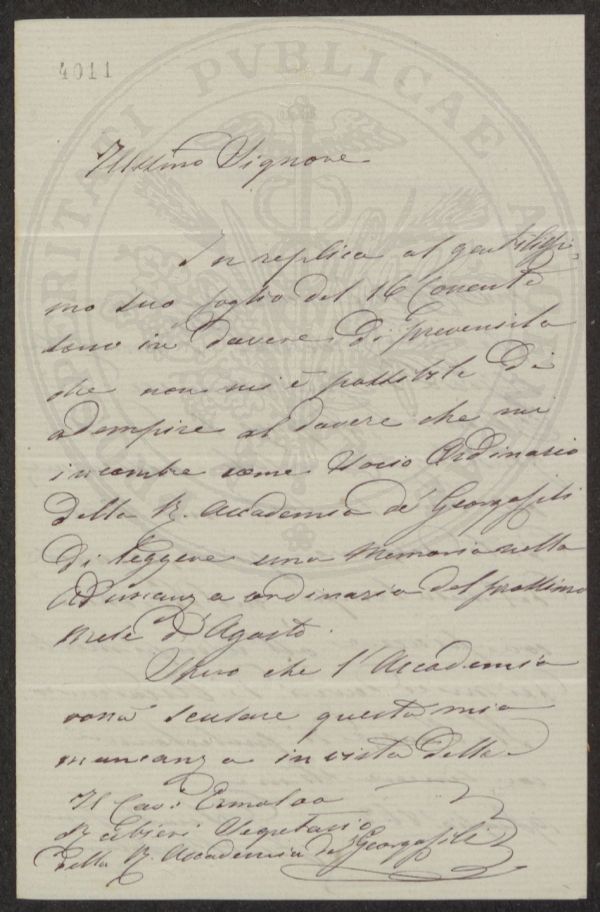 4011
PROSPERITATI PVBLICAE
Illmo Signore
In replica al gentilissi-
mo suo foglio del 16 Corrente
sono in dovere di prevenirla
che non mi è possibile di
adempire al dovere che mi
incombe come Socio Ordinario
della R. Accademia de' Georgofili
di leggere una Memoria nella
Adunanza ordinaria del prossimo
Mese d'Agosto.
Spero che l'Accademia
vorrà scusare questa mia
mancanza in vista della
Il Cav:
Segretario
della R. Accademia de' Georgofili